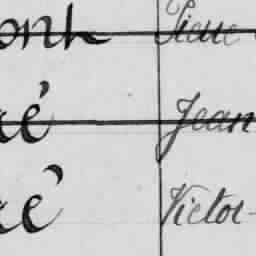 ont Pierre
cé Jean
cé Victor